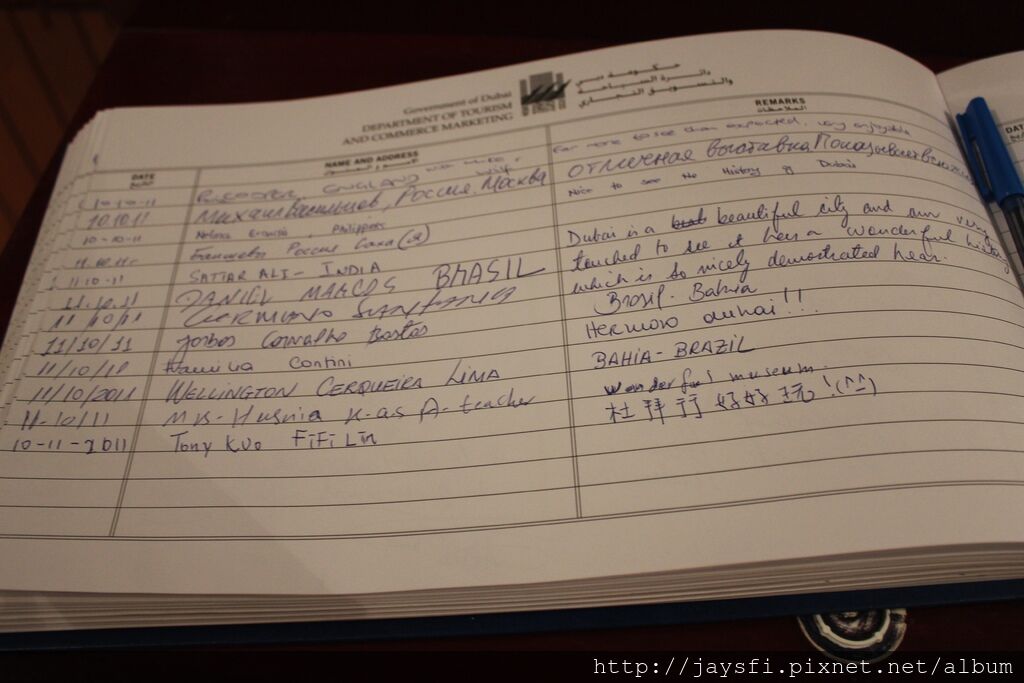 Government of Dubai
DEPARTMENT OF TOURISM
AND COMMERCE MARKETING
حكومة دبي
دائرة السياحة
والتسويق التجاري
DATE
التاريخ
NAME AND ADDRESS
REMARKS
الملاحظات
10-10-11 ENGLAND far more to see than expected. very enjoyable
10.10.11 Михаил Васильев, Россия, Москва отличная выставка
10-10-11 Philippines Nice to see the History of Dubai
Россия
11.10.11 SATTAR ALI - INDIA Dubai is a beautiful city and am very
touched to see it has a wonderful history
which is so nicely demostrated hear.
11.10.11 DANIEL MARCOS BRASIL
11/10/11 GERMANO SANTANA Brasil - Bahia
11/10/11 Carvalho Bastos Hermoso dubai!!!
11/10/11 Contini
11/10/2011 WELLINGTON CERQUEIRA LIMA BAHIA - BRAZIL
11-10/11 Mrs. Husnia K-as A-teacher wonderful museum.
10-11-2011 Tony Kuo FiFi Lin 杜拜行好好玩!(^_^)
http://jaysfi.pixnet.net/album